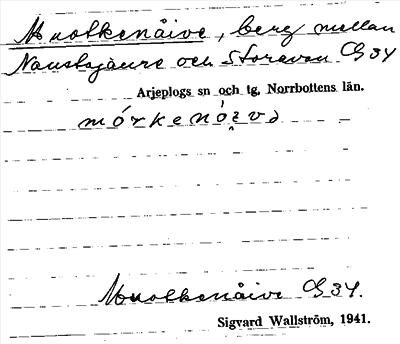 Muolkenåive, berg mellan
Nauskajaure och Storavan G 34
Arjeplogs sn och tg, Norrbottens län.
Muolkenåive G 34.
Sigvard Wallström, 1941.